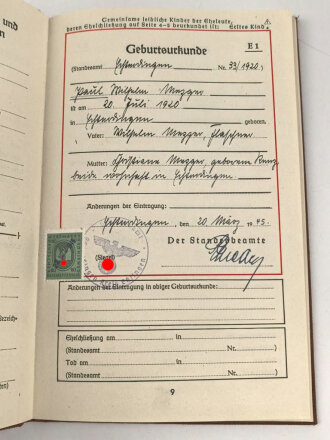 Gemeinsame leibliche Kinder der Eheleute,
deren Eheschließung auf Seite 4–5 beurkundet ist: Erstes Kind
Geburtsurkunde E 1
(Standesamt Echterdingen Nr. 33/1920.)
Paul Wilhelm Mezger
ist am 20. Juli 1920
in Echterdingen geboren.
Vater: Wilhelm Mezger, Flaschner
Mutter: Christiane Mezger, geborene Kurz
beide wohnhaft in Echterdingen
Änderungen der Eintragung:
Echterdingen, den 20. März 1945.
Der Standesbeamte
(Siegel)
Änderungen der Eintragung in obiger Geburtsurkunde:
Eheschließung am in
(Standesamt Nr. )
Tod am in
(Standesamt Nr. )
9